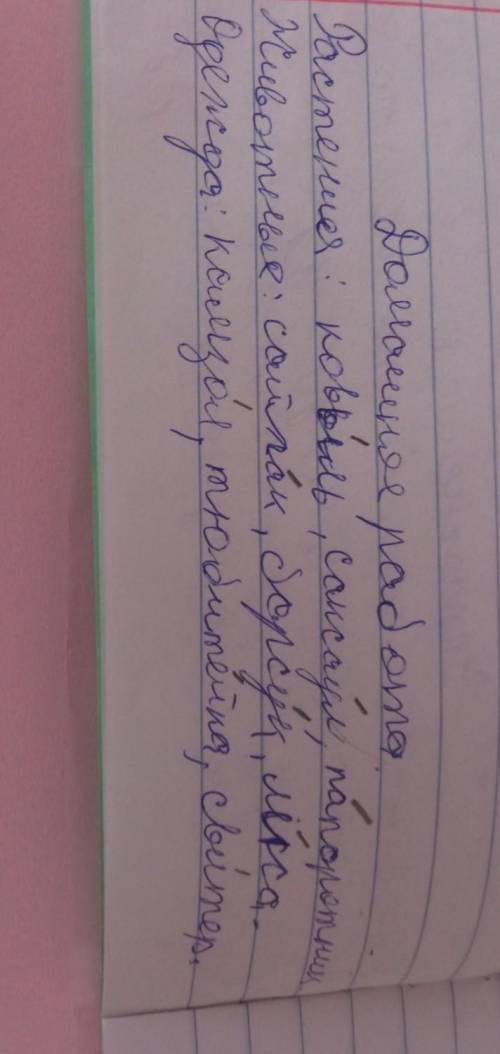 Домашняя работа
Растения: ковы́ль, саксау́л, па́поротник
Животные: сайга́к, барсу́к, лиса́.
Одежда: камзо́л, тюбите́йка, сви́тер.